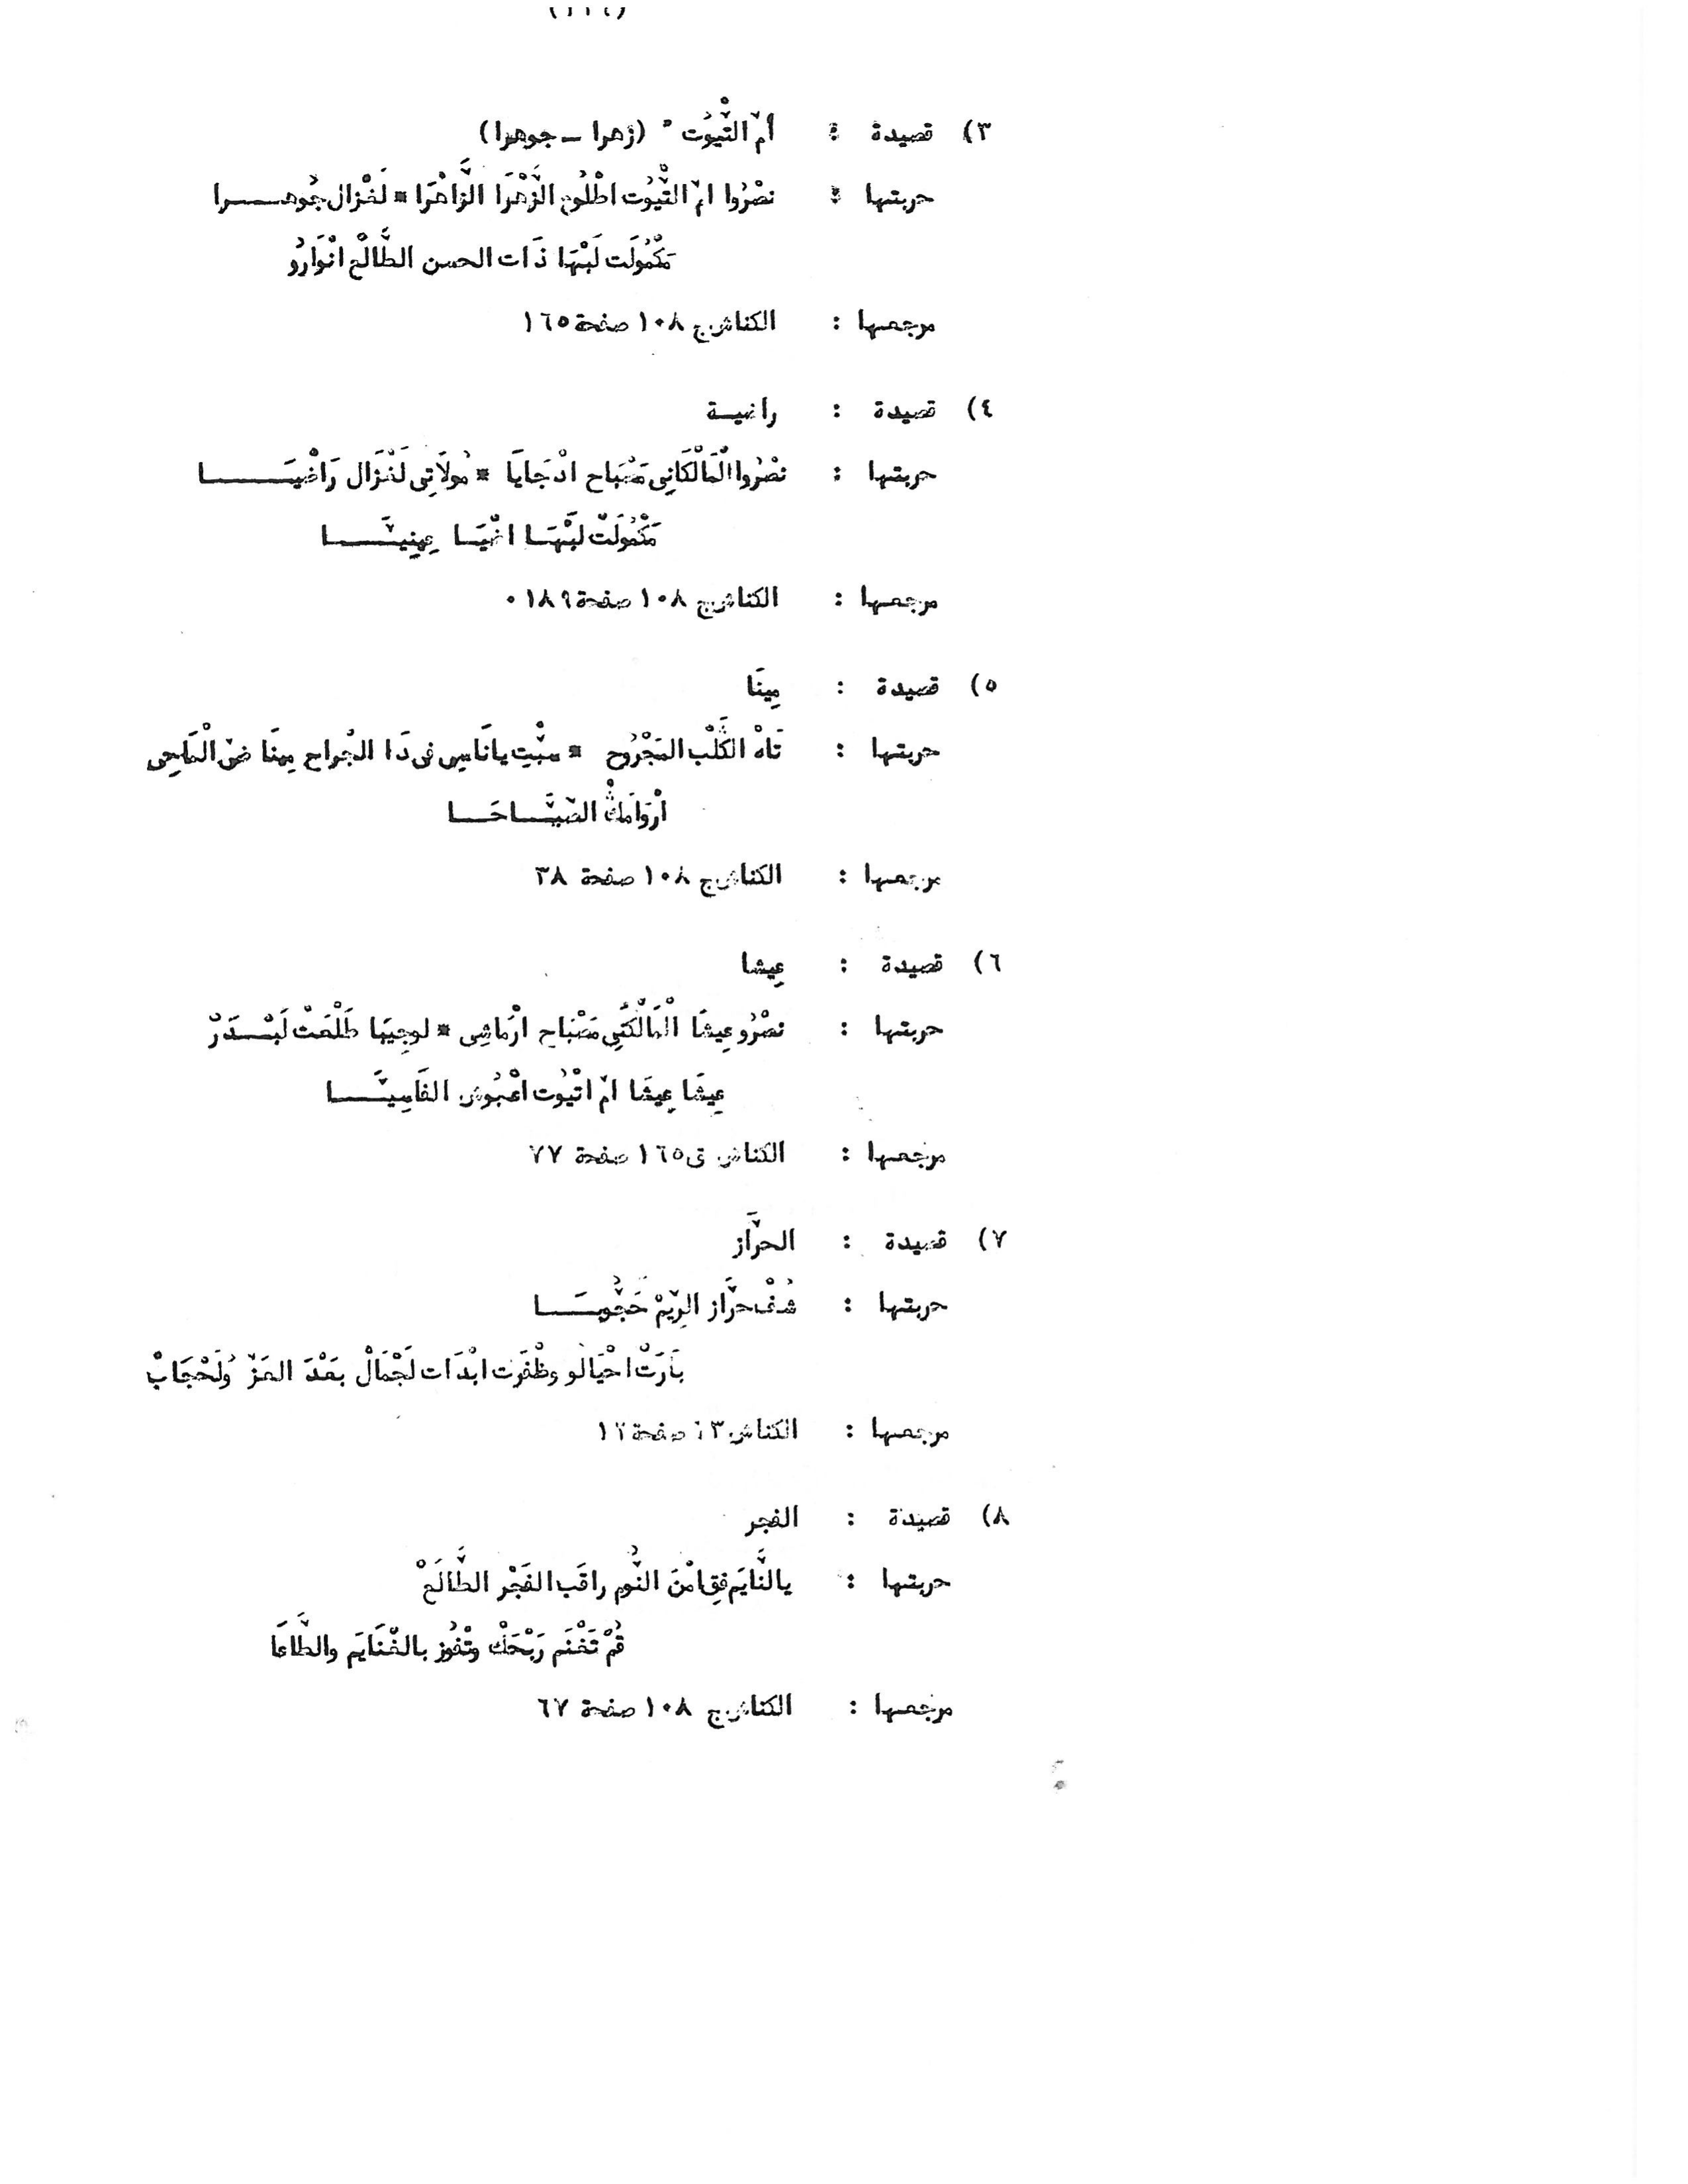 ٣) قصيدة : أمّ التّْيُوت " (زهرا ــ جوهرا)
حربتها : نصْرُوا امّ التّْيُوت اطْلُوع الزَّهْرَا الزَّاهْرَا * لَغْزال جُوهـــرا
مَكْمُولَت لَبْهَا ذَات الحسن الطَّالْع انْوَارُو
مرجعها : الكناش ج ١٠٨ صفحة ١٦٥
٤) قصيدة : راضيـة
حربتها : نصْرُوا الْمَالْكَانِي مَصْبَاح ادْجَايَا * مُولَاتِي لَغْزَال رَاضْيَـــــا
مَكْمُولَتْ لَبْهَـا اضْيَـا عِينِيَّـــا
مرجعها : الكناش ج ١٠٨ صفحة ١٨٩ ٠
٥) قصيدة : مِينَا
حربتها : تَاهْ الكَلْب المَجْرُوح * سبْتِ يا نَاسِي فى دَا الجُراح مِينَا ضيّ الْمَاحِي
أرْوَامَكْ الصّيَّـــاحَــا
مرجعها : الكناش ج ١٠٨ صفحة ٣٨
٦) قصيدة : عِيشا
حربتها : نصْرُو عِيشَا الْمَالْكَتْنِي مَصْبَاح ارْمَاشِي * لوجِيبَا طَلْعَتْ لَبْــدَرْ
عِيشَا عِيشَا امّ اتْيُوت اعْبُوش الفَاسِيَّـــا
مرجعها : الكناش ق ١٦٥ صفحة ٧٧
٧) قصيدة : الحرَّاز
حربتها : شُفْ حرَّاز الرِّيمْ حَجُّوبَـــا
بَارَتْ احْيَالُو وظْفَرْت ابْدَات لَجْمَالْ بَعْدَ العَزّ وُلَحْجَابْ
مرجعها : الكناش ٦٣ صفحة
٨) قصيدة : الفجر
حربتها : يالنَّايَم فِق امْنَ النُّوم راقَب الفَجْر الطَّالَعْ
قُمْ تَغْنَم رَبْحَكْ وتْفُوز بالغْنَايَم والطَّاعَا
مرجعها : الكناش ج ١٠٨ صفحة ٦٧